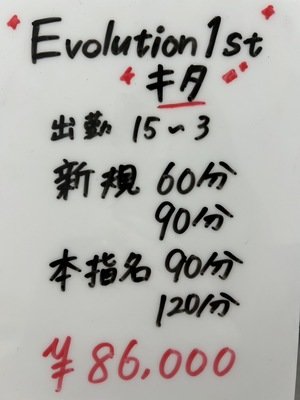 Evolution1st
キタ
出勤 15～3
新規 60分
90分
本指名 90分
120分
¥86,000